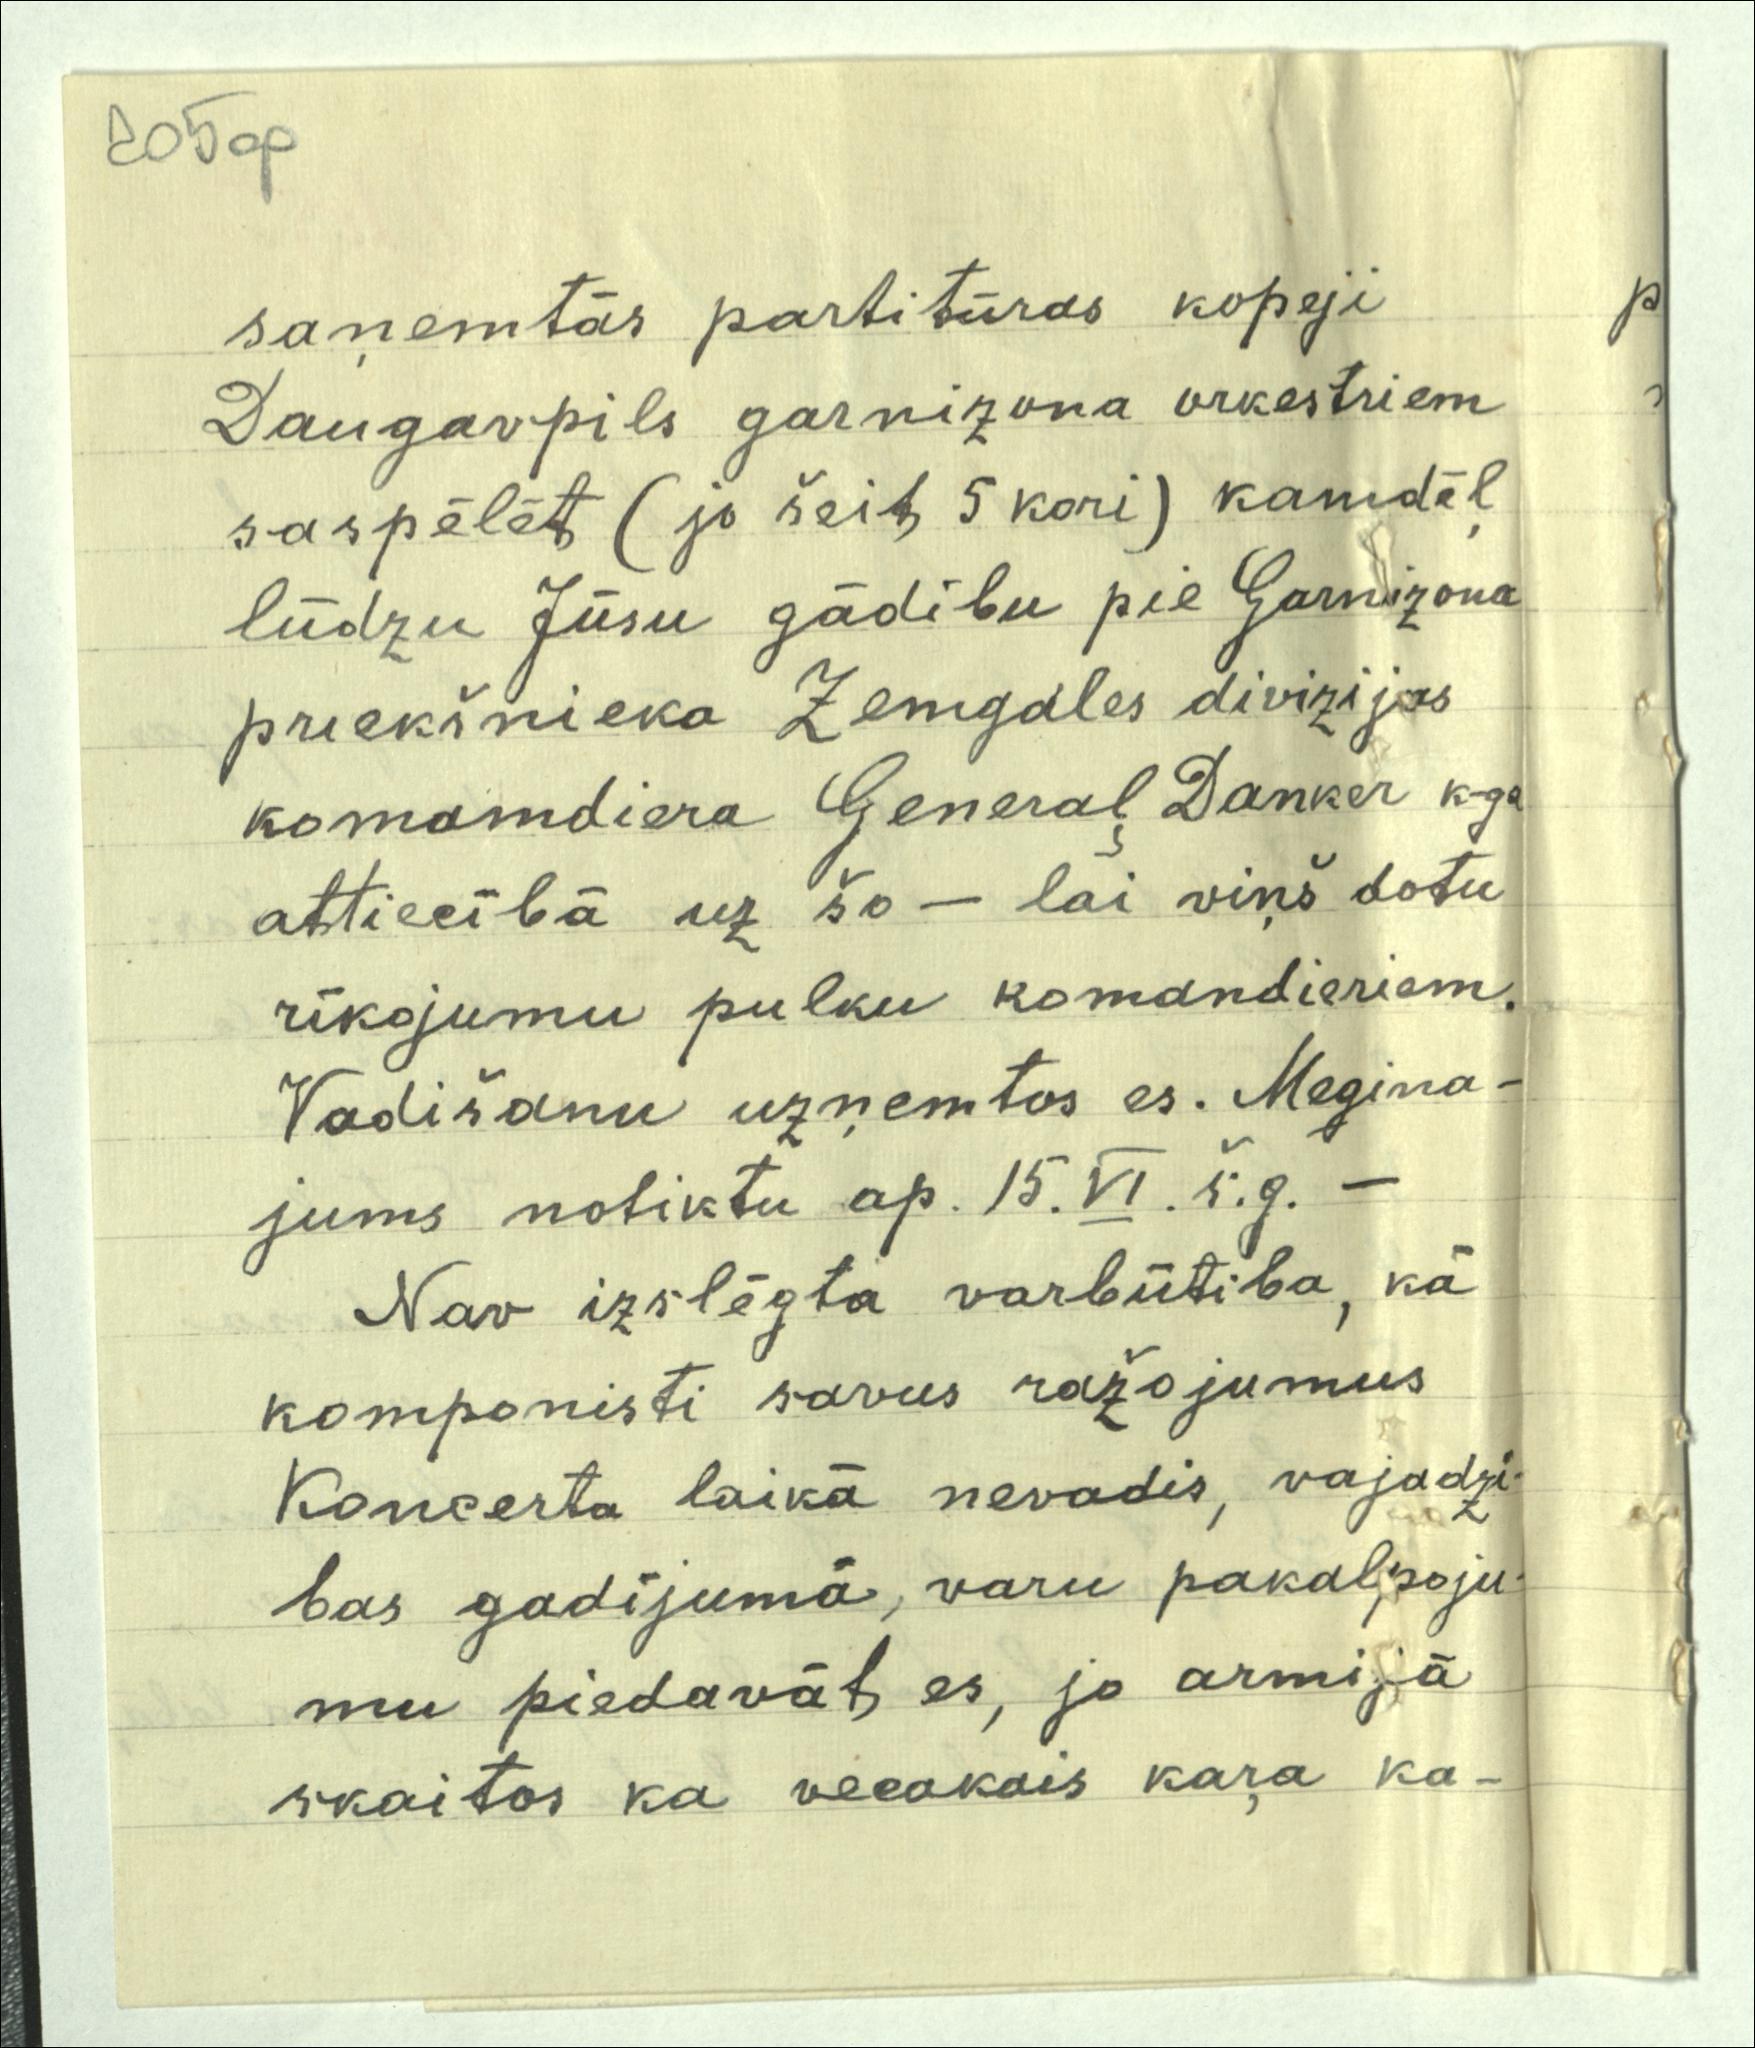 205ap
saņemtās partitūras kopeji
Daugavpils garnizona orkestriem
saspēlēt (jo šeit 5 kori) kamdēļ
lūdzu Jūsu gādību pie Garnizona
priekšnieka Zemgales divizijas
komamdiera Generaļ Danker k-ga
attiecībā uz šo — lai viņš dotu
rīkojumu pulku komandieriem.
Vadišanu uzņemtos es. Megina-
jums notiktu ap. 15. VI. š.g. —
Nav izslēgta varbūtiba, kā
komponisti savus ražojumus
Koncerta laikā nevadis, vajadzi-
bas gadījumā, varu pakalpoju-
mu piedavāt es, jo armijā
skaitos ka vecakais kaŗa ka-